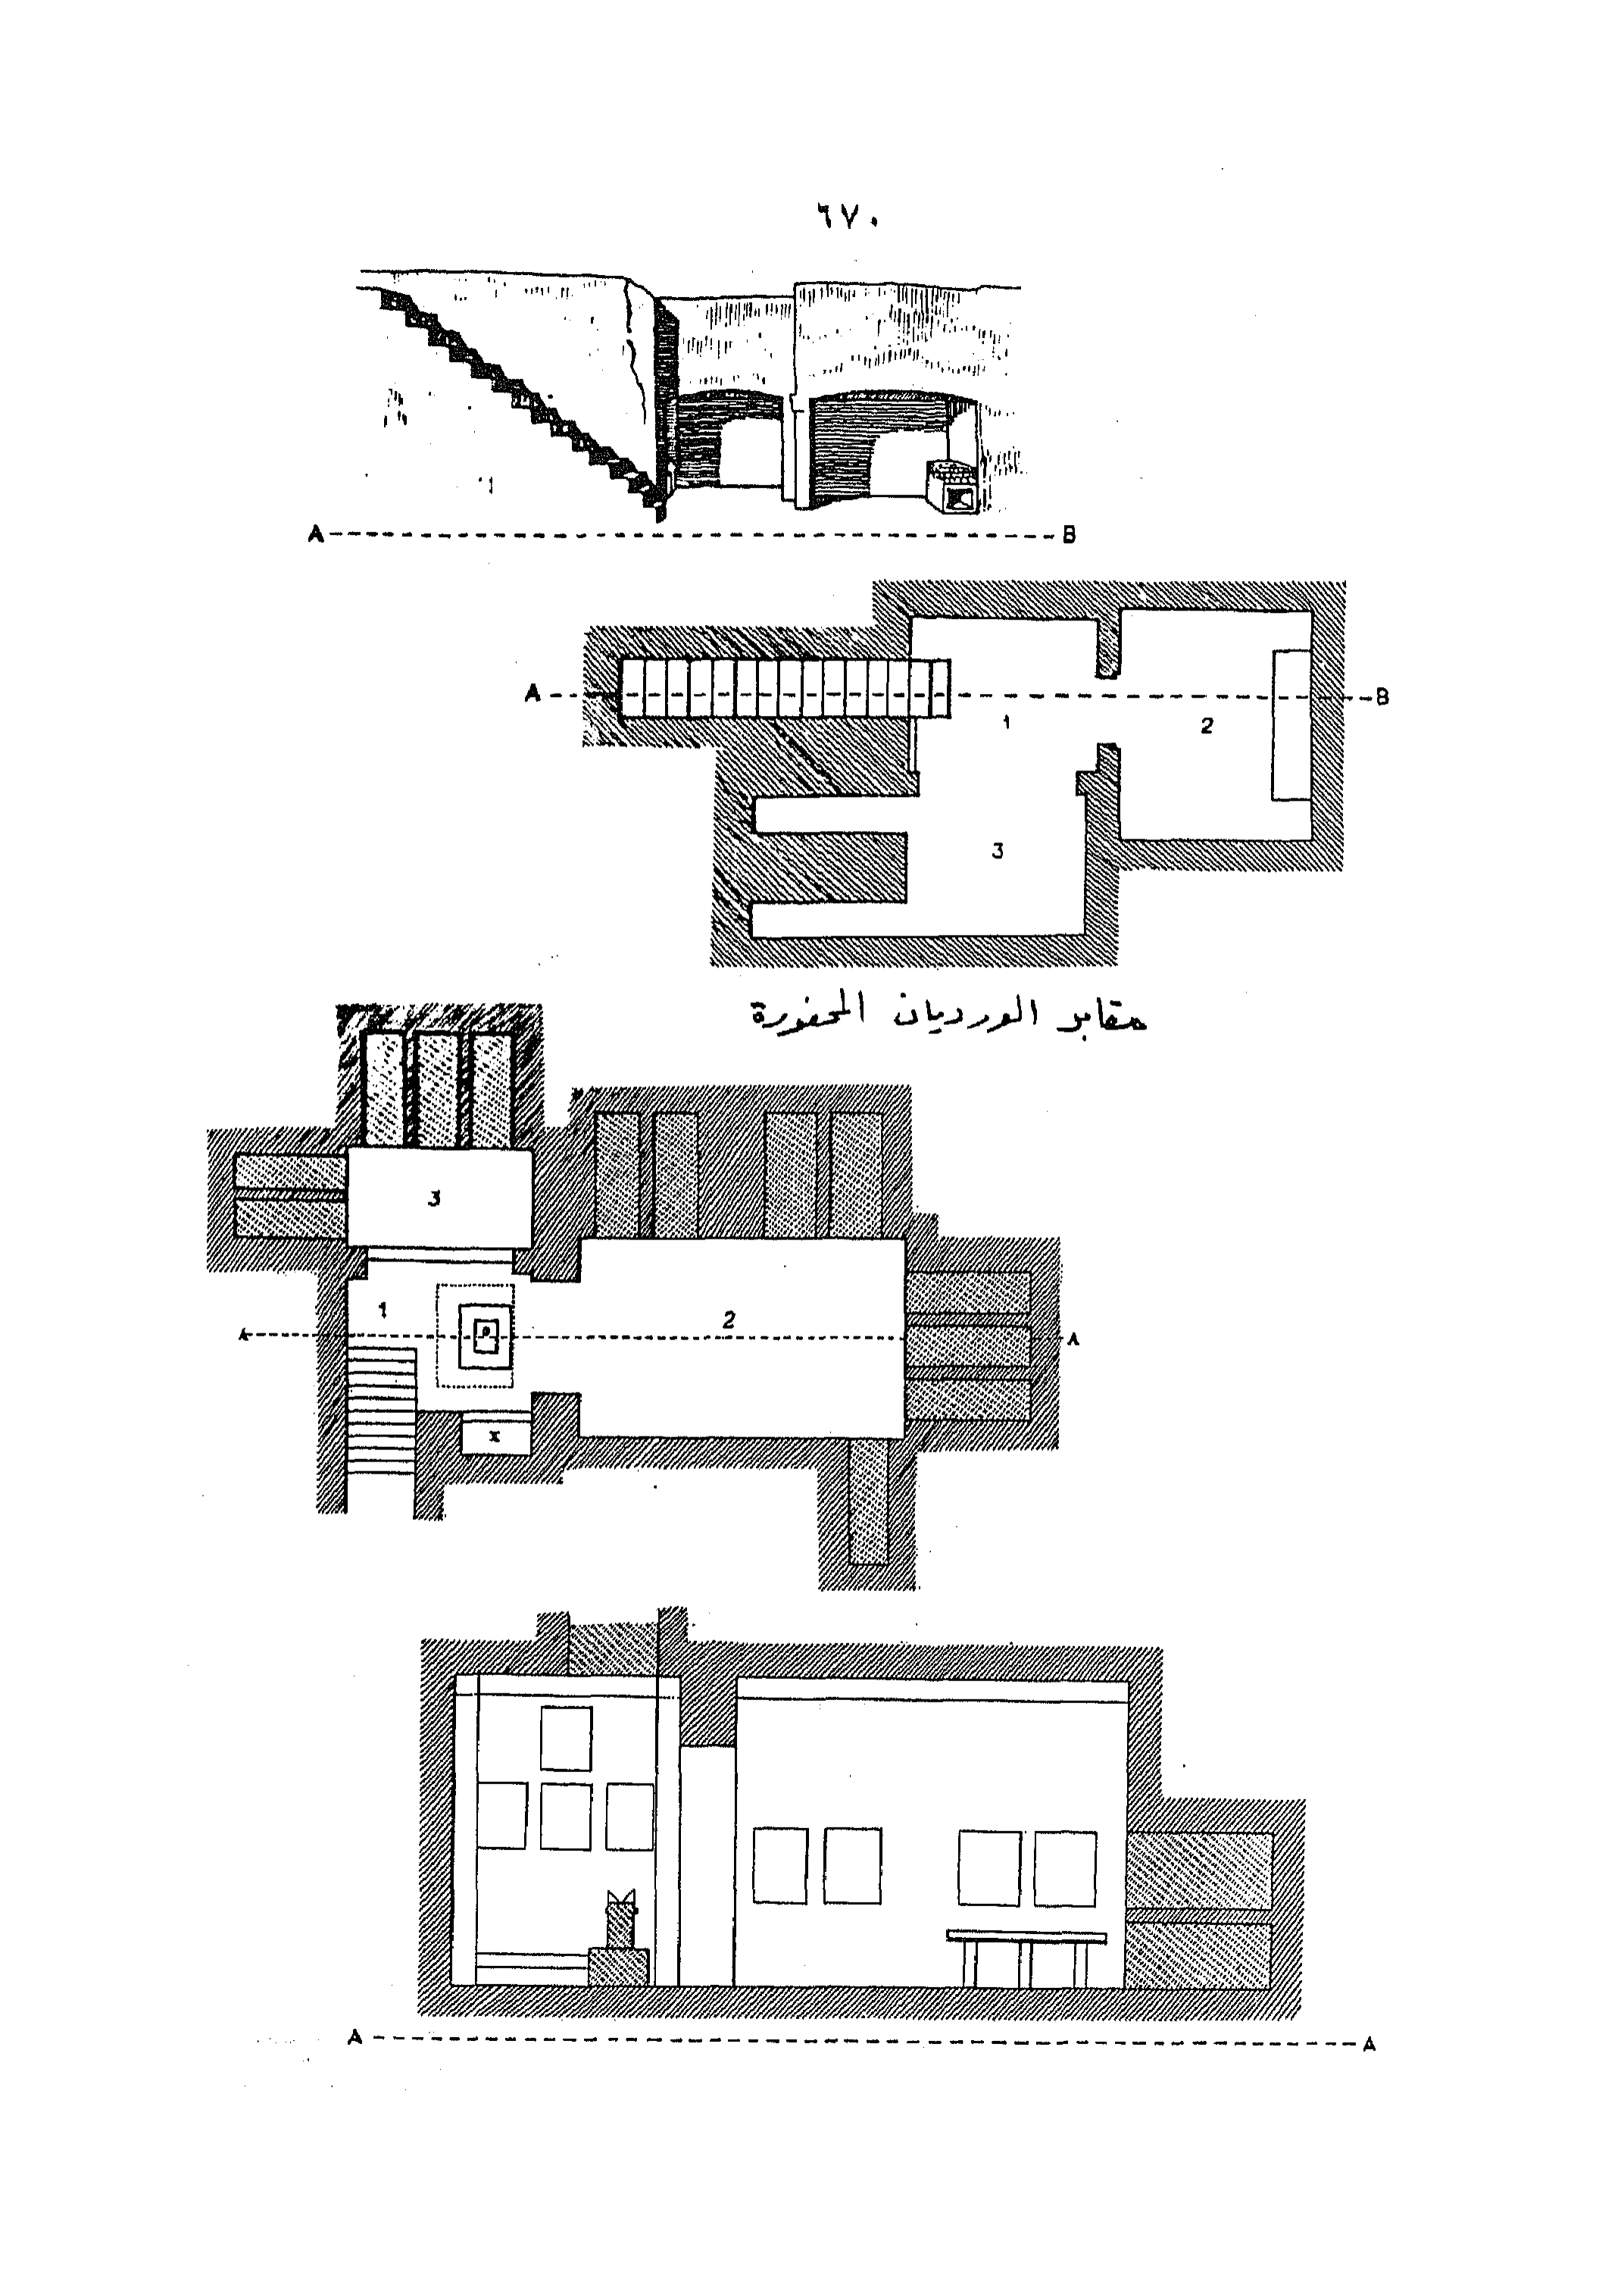 ٦٧٠
A B
A B
1 2
3
مقابر الورديان المحفورة
3
1 2
A A
x
A A